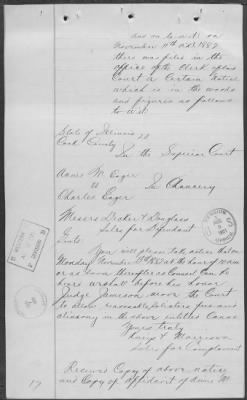 And on to wit: on
November 11th A.D. 1887
there was filed in the
office of the Clerk of said
Court a Certain Notice
which is in the words
and figures as follows
to wit:
State of Illinois
Cook County
In the Superior Court
Annie M. Eager
vs
Charles Eager
In Chancery
Messrs Decker & Douglass
Sols for Defendant
Gents
Your will please take notice that on
Monday November
or as soon thereafter as Counsel can be
heard I shall before his Honor
Judge Jameson move the Court
to allow reasonable solicitors fees and
alimony in the above entitled Cause
Yours truly
Harrison
Sols for Complainant
Received Copy of above notice
and Copy of affidavit of Annie M.
17